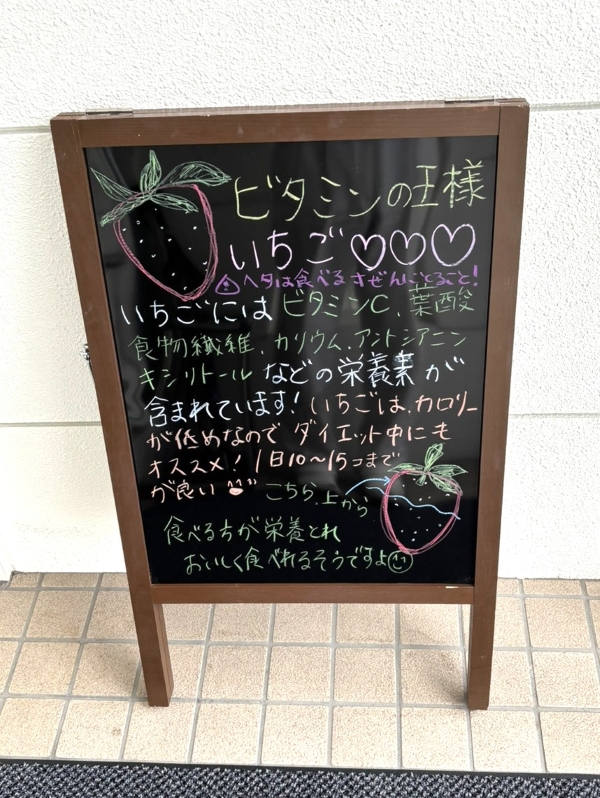 ビタミンの王様
いちご♡♡♡
⚠ヘタは食べるすぜんにとること!
いちごには ビタミンC、葉酸
食物繊維、カリウム、アントシアニン
キシリトール などの栄養素が
含まれています! いちごは、カロリー
が低めなので ダイエット中にも
オススメ! 1日10～15コまで
が良い
こちら、上から
食べる方が栄養とれ
おいしく食べれるそうですよ